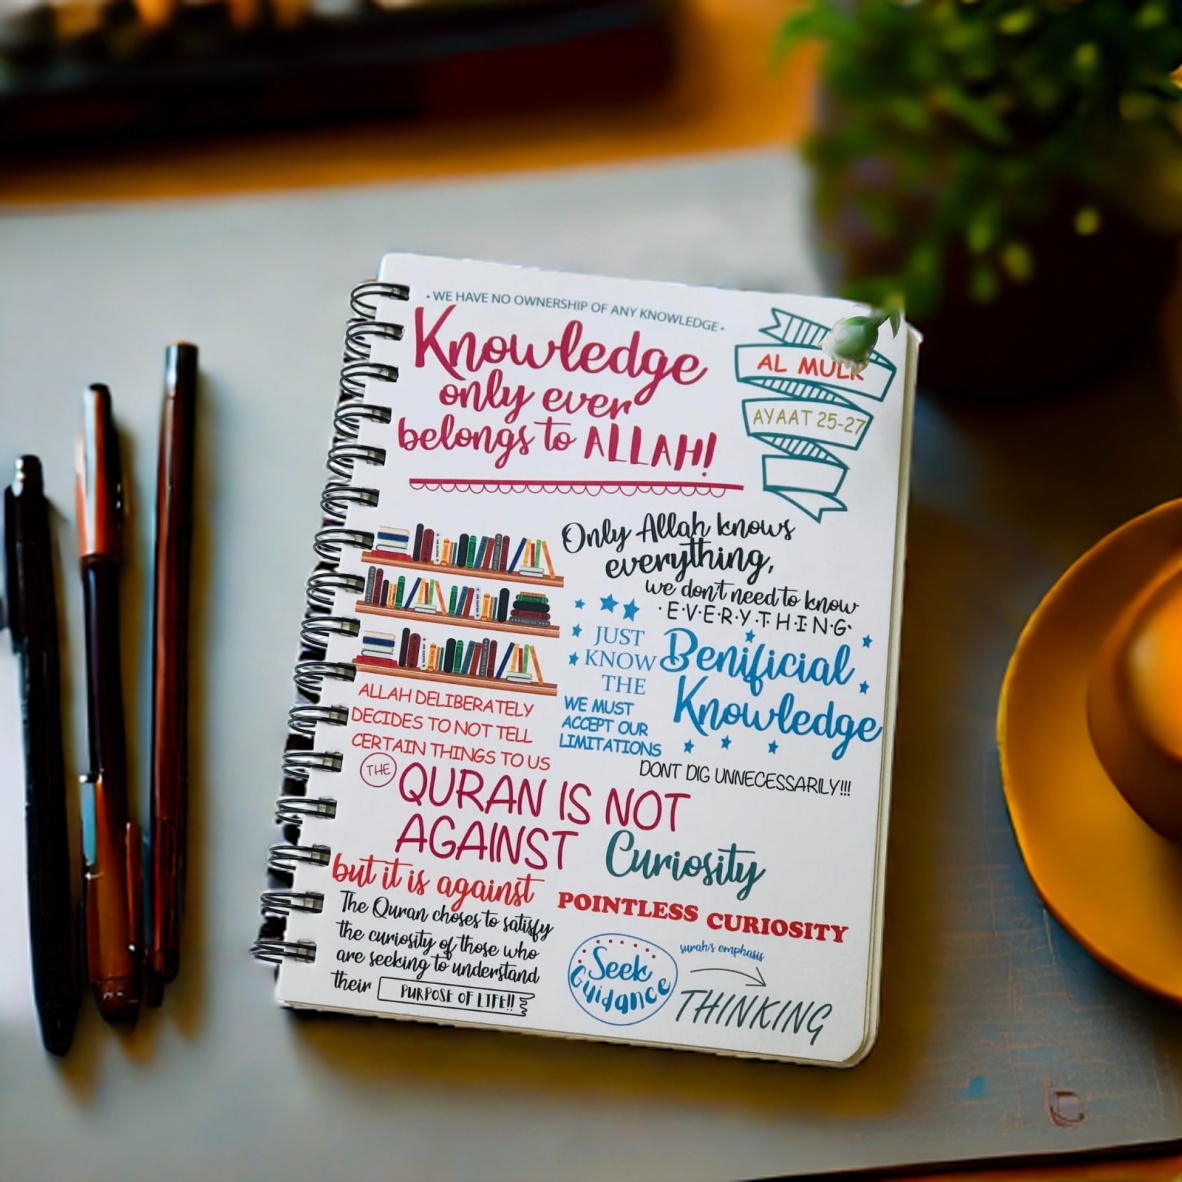 • WE HAVE NO OWNERSHIP OF ANY KNOWLEDGE •
Knowledge
only ever
belongs to ALLAH!
AL MULK
AYAAT 25-27
Only Allah knows
everything,
we don't need to know
• E • V • E • R • Y • T • H • I • N • G •
JUST
KNOW
THE
Benificial
Knowledge
WE MUST
ACCEPT OUR
LIMITATIONS
DONT DIG UNNECESSARILY!!!
ALLAH DELIBERATELY
DECIDES TO NOT TELL
CERTAIN THINGS TO US
THE QURAN IS NOT
AGAINST Curiosity
but it is against POINTLESS CURIOSITY
The Quran choses to satisfy
the curiosity of those who
are seeking to understand
their PURPOSE OF LIFE!!
Seek
Guidance
surah's emphasis
THINKING